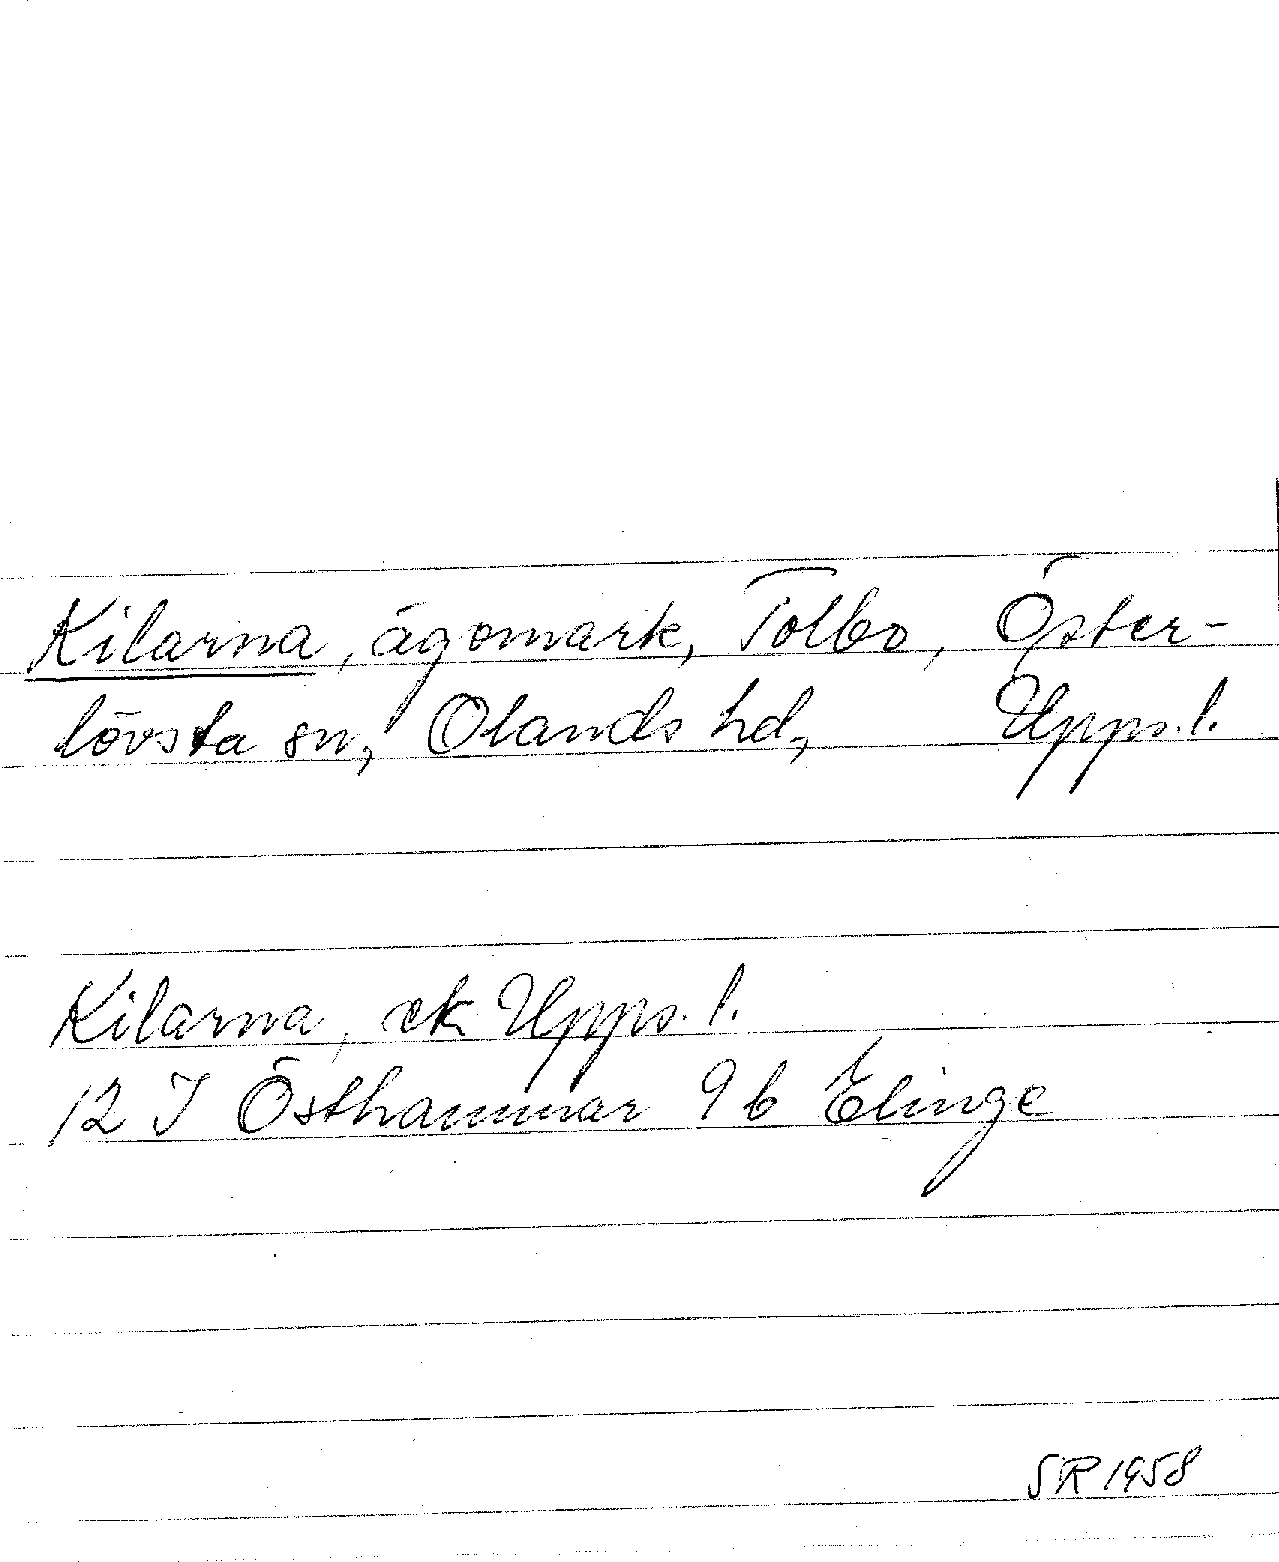 Kilarna, ägomark, Tolbo, Öster-
lövsta sn, Olands hd, Upps. l.
Kilarna, ek Upps. l.
12 I Östhammar 9 b Elinge
SR 1958